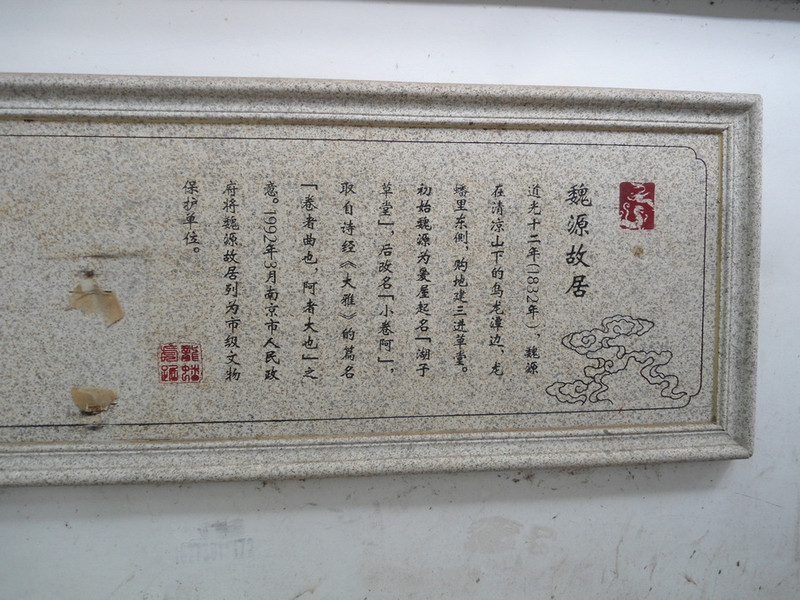 魏源故居
道光十二年(1832年)，魏源
在清凉山下的乌龙潭边、龙
蟠里东侧，购地建三进草堂。
初始魏源为爱屋起名「湖子
草堂」，后改名「小卷阿」，
取自诗经《大雅》的篇名
「卷者曲也，阿者大也」之
意。1992年3月南京市人民政
府将魏源故居列为市级文物
保护单位。